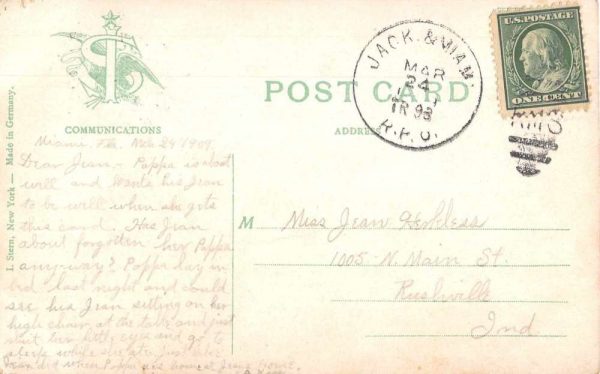 U.S. POSTAGE
ONE CENT
JACK. & MIAM.
MAR
24
TR 93
R.P.O.
RMS
POST CARD
COMMUNICATIONS
ADDRESS
I. Stern, New York — Made in Germany.
Miami, Fla. Mch 24 1909.
Dear Jean - Poppa is about
well and wants his Jean
to be well when she gets
this card. Has Jean
about forgotten her Poppa
anyway? Poppa lay in
bed last night and could
see his Jean sitting on her
high chair at the table and just
shut her little eyes and go to
sleep while she ate. Just like
Jean did when Poppa was home at Jean's house.
M Miss Jean
1005 - N. Main St.
Rushville
Ind